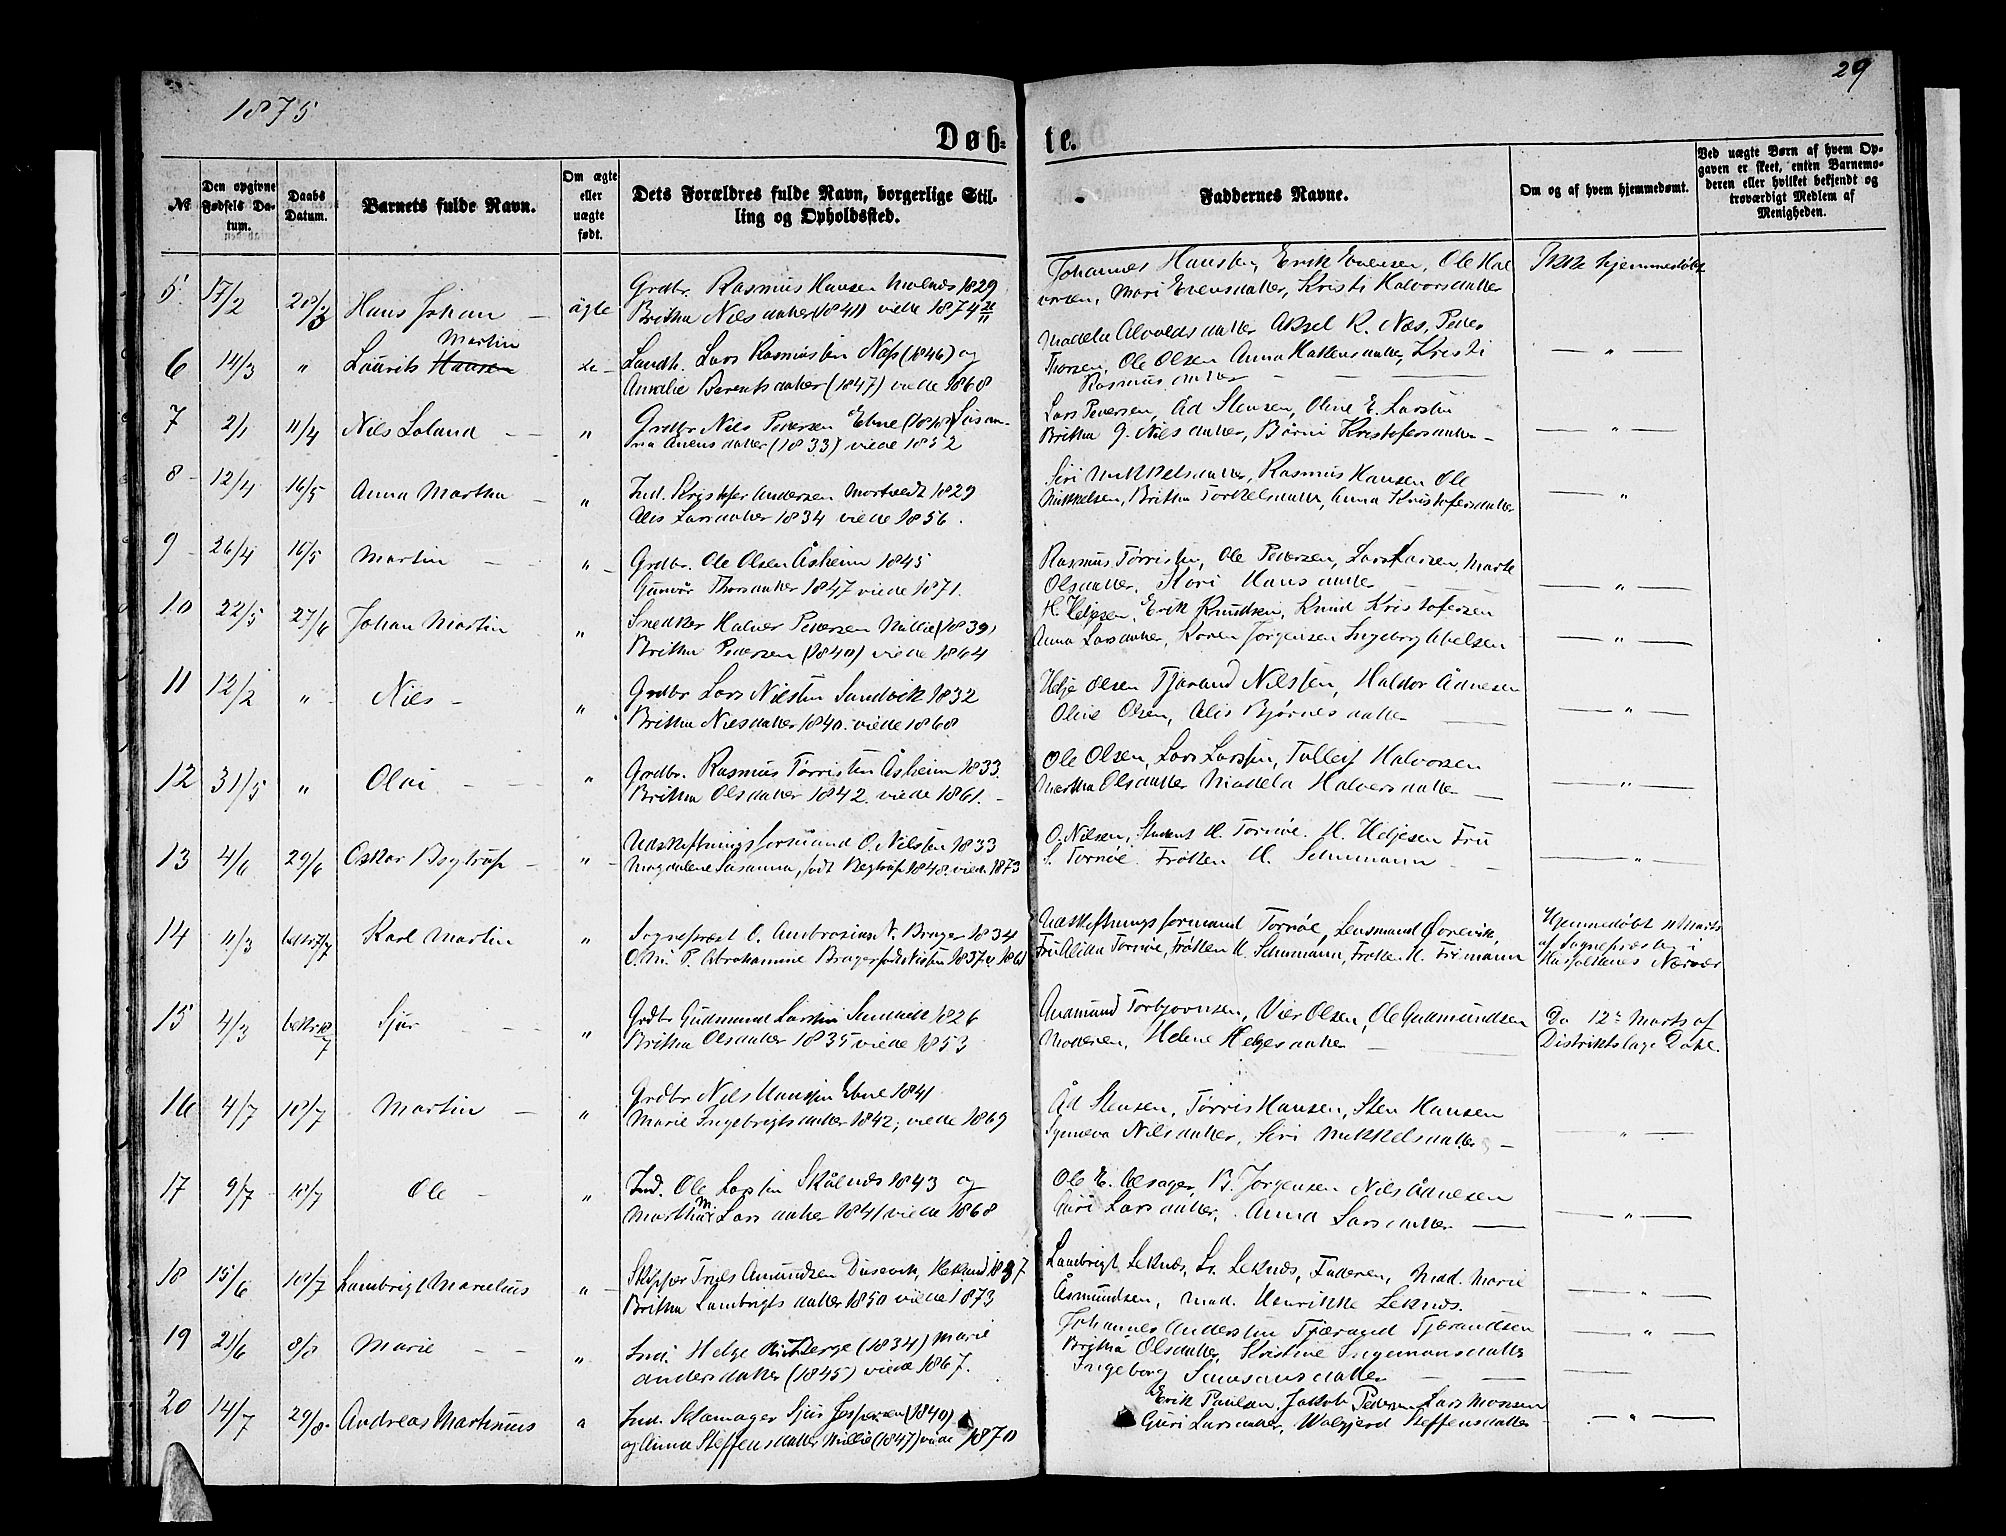 29
1875
Døb-
te.
№
Den opgivne Fødsels Datum.
Daabs Datum.
Barnets fulde Navn.
Om ægte eller uægte født.
Dets Forældres fulde Navn, borgerlige Stilling og Opholdssted.
Faddernes Navne.
Om og af hvem hjemmedøbt.
Ved uægte Børn af hvem Opgaven er skeet, enten Barnemoderen eller hvilket bekjendt og troværdigt Medlem af Menigheden.
5 17/2 28/3 Hans Johan — ägte
Grdbr. Rasmus Hansen Molnes 1829
Britha Nilsdatter (1841) viede 1874
Johannes Hansen, Erik Evensen, Ole Hal
vorsen, Mari Evensdatter, Kristi Halvorsdatter
Ikke hjemmedøbt
6 14/3 " Laurits Hansen Martin
Landh. Lars Rasmussen Næss (1846) og
Amalie Berentsdatter (1847) viede 1868
Madela Alvoldsdatter Aksel R. Næs, Peder
Thorsen, Ole Olsen Anna Hakensdatter, Kristi
Rasmusdatter — — —
— " —
7 2/1 11/4 Nils Loland — "
Grdbr. Nils Pedersen Ebne Susan-
na Anensdatter (1833) viede 1852
Lars Pedersen, Ad Stensen, Oline E. Larsen
Britha G. Nilsdatter, Børni Kristofersdatter —
— " —
8 12/4 16/5 Anna Martha — "
Ind. Kristofer Andersen Mortvedt 1829
Alis Larsdatter 1834 viede 1856.
Siri Mikkelsdatter, Rasmus Hansen Ole
Mikkelsen, Britha Torkelsdatter, Anna Kristofersdatter
— "
9 26/4 16/5 Martin — "
Grdbr. Ole Olsen Åsheim 1845
Gunvor Thorsdatter 1847 viede 1871.
Rasmus Tørrissen, Ole Pedersen, Lars Larsen, Marte
Olsdatter, Kari Hansdatter
— " —
10 22/5 27/6 Johan Martin "
Snedker Halvor Pedersen Millie (1839)
Britha Pedersen (1840) viede 1864
H. Heljesen, Erik Knudsen, Knud Kristofersen
Anna Larsdatter, Karen Jørgensen Ingeborg Abelsen
— " —
11 12/2 " Nils — "
Grdbr Lars Nilsen Sandvik 1832
Britha Nilsdatter 1840. viede 1860
Helje Olsen Tjerand Nilssen, Haldor Adnesen
Oline Olsen, Alis Bjørnesdatter —
— " —
12 31/5 " Olai — "
Grdbr. Rasmus Tørrissen Åsheim 1833.
Britha Olsdatter 1842. viede 1861. —
Ole Olsen, Lars Larssen, Tollef Halvorsen
Martha Olsdatter Madela Halversdatter —
— " —
13 4/6 29/6 Oskar Begtrup — "
Udskiftningsformand O. Nilsen 1833
Magdalene Susanna, født Begtrup 1848. viede 1873
O. Nilsen, Student H. Tornøe. H. Heljesen Fru
S. Tornøe. Frøken H. Schumann —
— " —
14 11/3 bekr 7/7 Karl Martin "
Sogneprest O. Ambrosius N. Brager 1834
O. M. P. Abrahamine Brager født Nissen 1837 v. 1861
Udskiftningsformand Tornøe, Lensmand Sørevik,
Fru Alida Tornøe, Frøken H. Schumann, Frøken H. Frimann
Hjemmedøbt 11 Marts
af Sognepresten i
Husfolkenes Nærvær
15 4/3 bekr 18/7 Sjur — "
Grdbr Gudmund Larsen Sundnes 1826
Britha Olsdatter 1835 viede 1853
Audmund Torbjørnsen, Vier Olsen, Ole Gudmundsen
Moderen, Helene Helgesdatter —
Do 12te Marts af
Distriktslæge Dahl.
16 4/7 18/7 Martin — "
Grdbr Nils Hanssen Ebne 1841
Marie Ingebrigtsdatter 1842; viede 1869
Åd Stensen, Tørris Hansen, Sten Hansen
Synneva Nilsdatter, Siri Mikkelsdatter —
— " —
17 9/7 18/7 Ole — "
Ind. Ole Larsen Skålnes 1843 og
Martha M. Larsdatter 1841 viede 1868
Ole E. Alsager, B. Jørgensen Nils Ådnesen
Guri Larsdatter, Anna Larsdatter —
— " —
18 15/6 18/7 Lambrigt Marselius "
Skipper Truls Amundsen Dusevik, Heland 1837
Britha Lambrigtsdatter 1850 viede 1873
Lambrigt Leknes, L. Leknes, Faderen, Mad. Marie
Åsmundsen, Mad. Henrikke Leknes.
— " —
19 21/6 8/8 Marie — — "
Ind. Helge Berge (1834) Marie
Andersdatter (1845) viede 1867.
Johannes Andersen Tjærand Tjærandsen
Britha Olsdatter, Kristine Ingemansdatter
Ingeborg Simonsdatter —
— " —
20 14/7 29/8 Andreas Martinus "
Ind. Skomager Sjur Jespersen (1840)
og Anna Steffensdatter Millie (1847) viede 1870
Erik Paulsen, Jakob Pedersen Lars Monsen
Guri Larsdatter, Valgjerd Steffensdatter
— " —